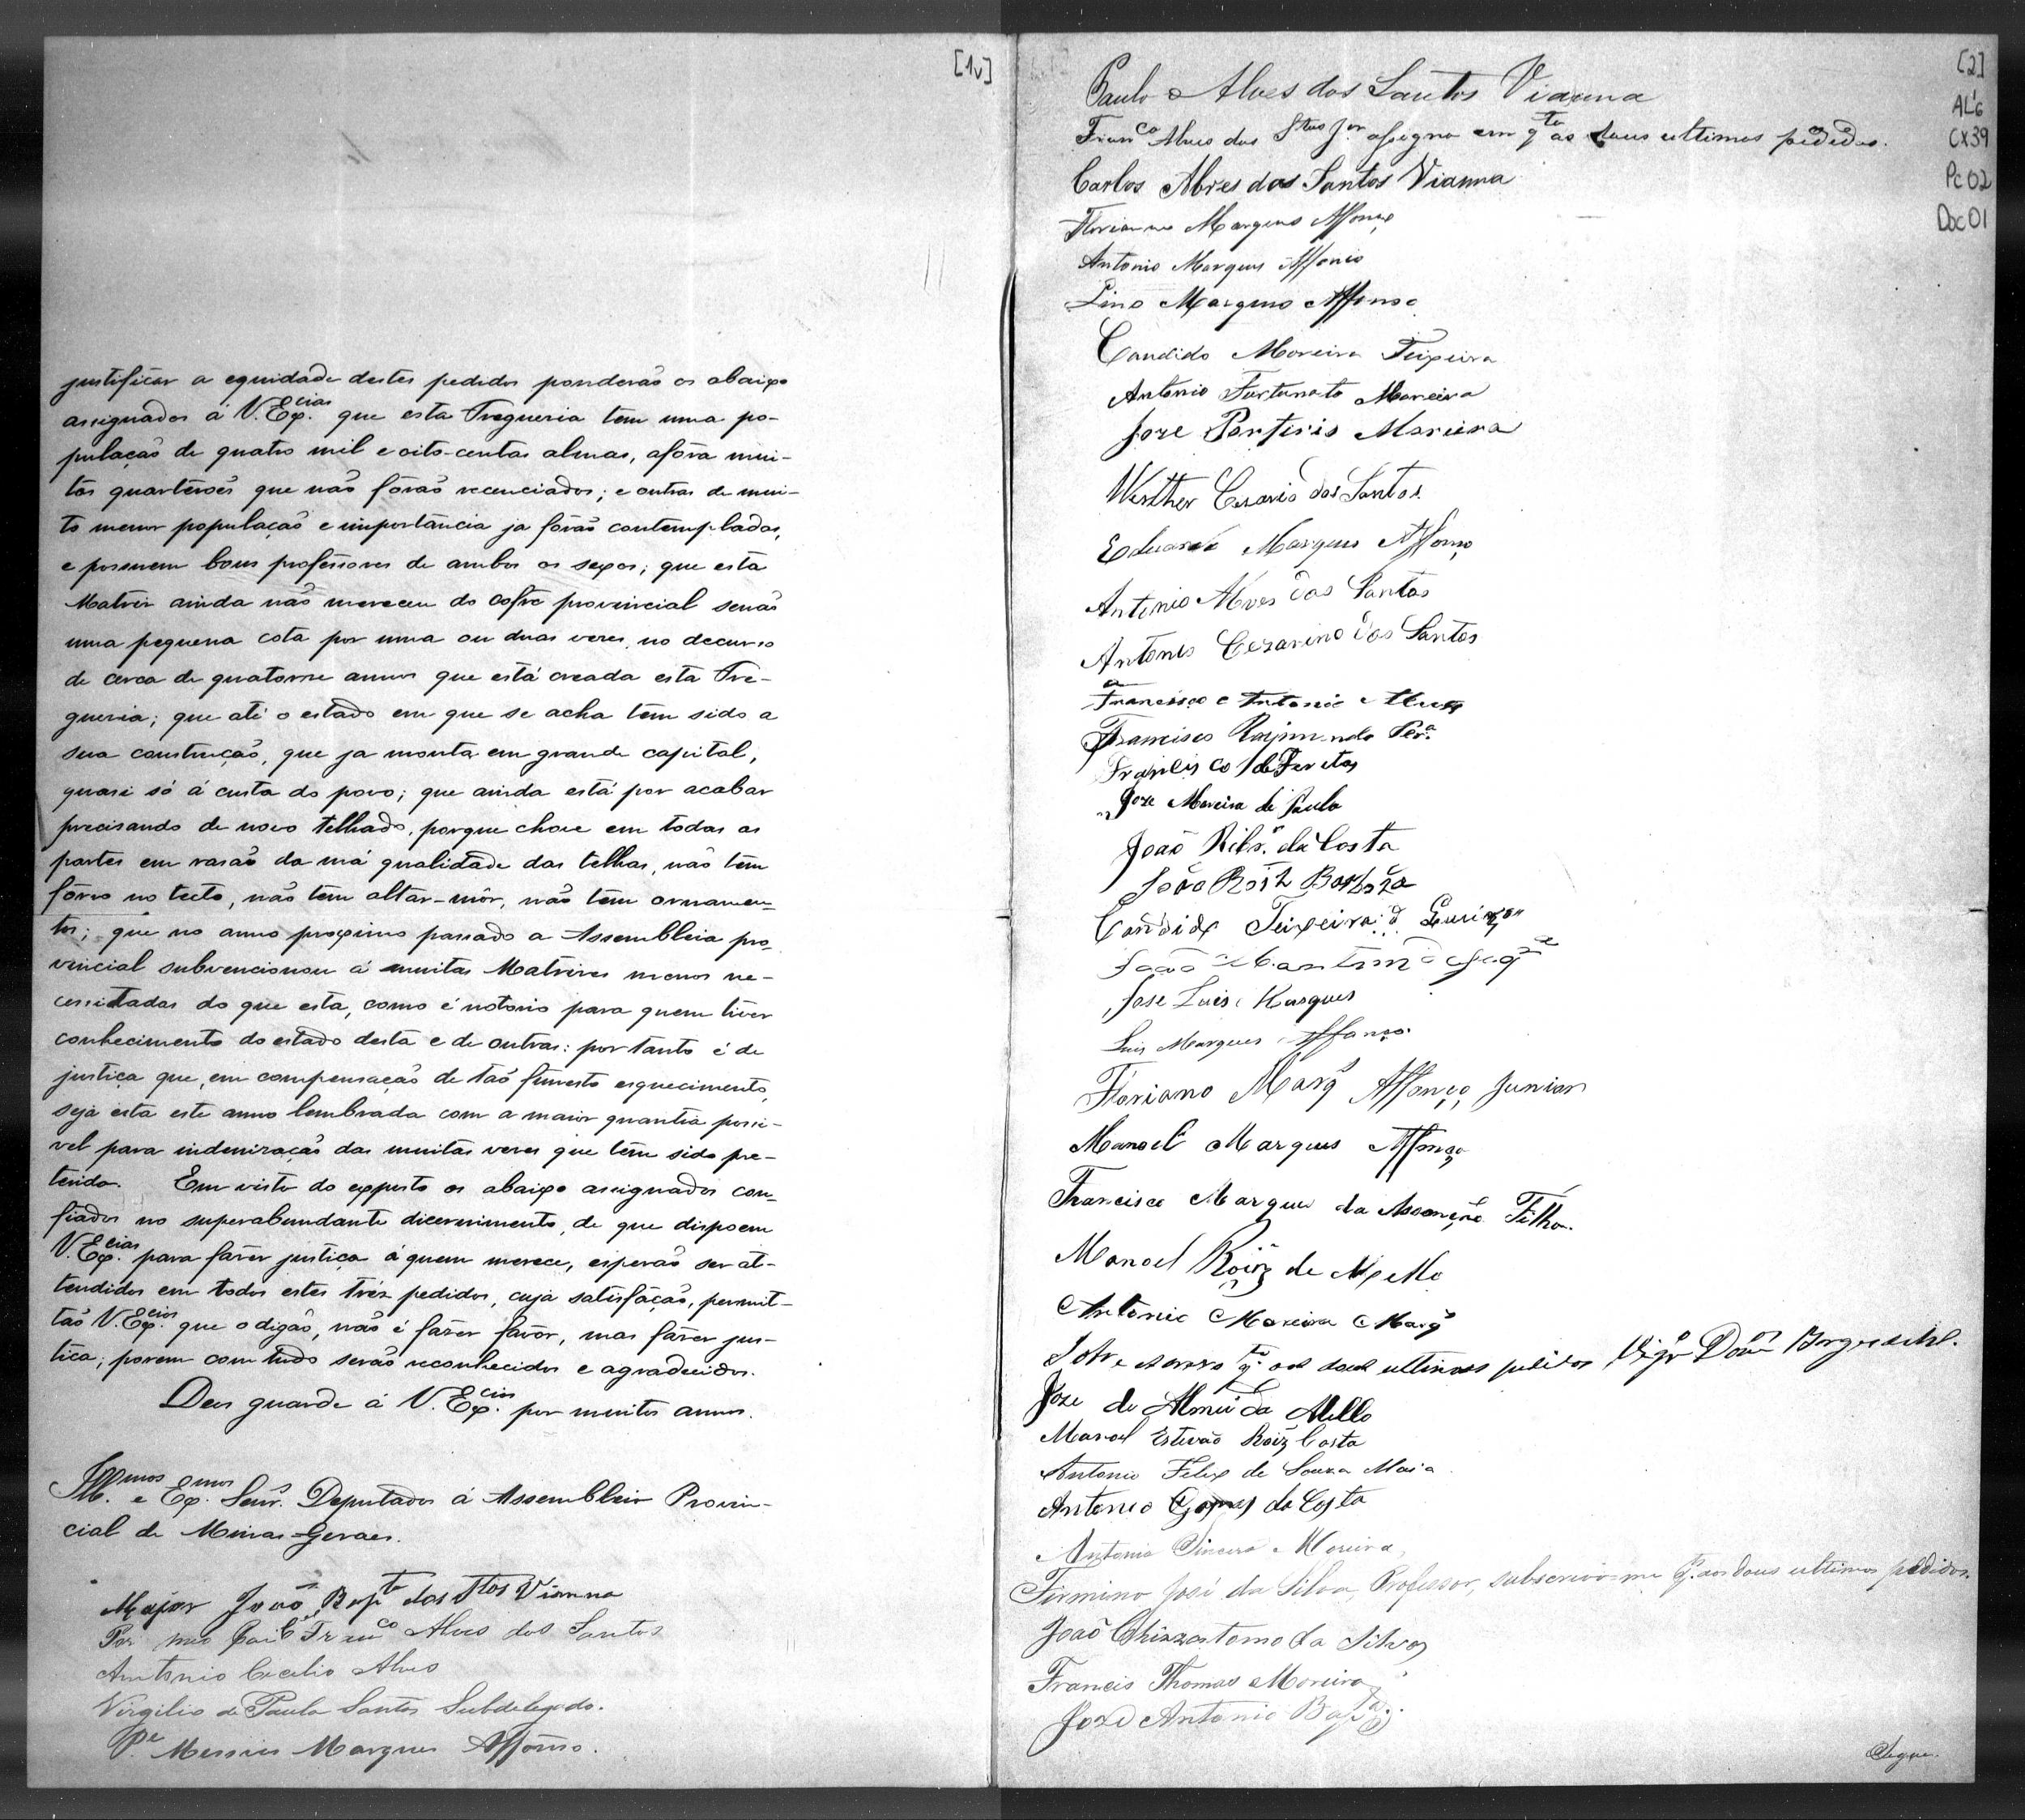 [1v]
justificar a equidade destes pedidos ponderão os abaixo
assignados á V. Ex.cias que esta Fregueria tem uma po-
pulação de quatro mil e oito-centas almas, afóra mui-
tos quarterões que não fôrão recenciados; e outras de mui-
to menor população e importância ja fôrão contempladas,
e possuem bons professores de ambos os sexos; que esta
Matriz ainda não mereceu do cofre provincial senão
uma pequena cota por uma ou duas veses, no decurso
de cerca de quatorze annos que está creada esta Fre-
gueria; que até o estado em que se acha tem sido a
sua construção, que ja monta em grande capital,
quasi só á custa do povo; que ainda está por acabar
precisando de novo telhado, porque chove em todas as
partes em rasão da má qualidade das telhas, não tem
fôrro no tecto, não tem altar-mór, não tem ornamen-
tos; que no anno proximo passado a Assembleia pro-
vincial subvencionou á muitas Matrizes menos ne-
cessitadas do que esta, como é notorio para quem tiver
conhecimento do estado desta e de outras: por tanto é de
justiça que, em compensação de tão funesto esquecimento,
seja esta este anno lembrada com a maior quantia possi-
vel para indenização das muitas vezes que tem sido pre-
terida. Em vista do exposto os abaixo assignados con-
fiados no superabundante dicernimento, de que dispoem
V. Ex.cias para fazer justiça á quem merece, esperão ser at-
tendidos em todos estes três pedidos, cuja satisfação, permit-
tão V. Ex.cias que o digão, não é fazer favôr, mas fazer jus-
tiça; porem com tudo serão reconhecidos e agradecidos.
Deus guarde á V. Ex.cias por muitos annos.
Ill.mos e Ex.mos Senr.s Deputados á Assembleia Provin-
cial de Minas-Geraes.
Major João Bap.ta dos S.tos Vianna
Por meo Pai Fran.co Alves dos Santos
Antonio Cecilio Alves
Virgilio de Paula Santos Subdelegado.
P.e Messias Marques Affonso.
[2]
AL6
CX39
Pc02
Doc01
Paulo Alves dos Santos Vianna
Fran.co Alves dos S.tos J.or assigno em q.to aos dous ultimos pedidos.
Carlos Alves dos Santos Vianna
Florianno Marques Affonço
Antonio Marques Affonso
Lino Marques Affonso
Candido Moreira Teixeira
Antonio Fortunato Moreira
Joze Porfirio Moreira
Werther Cesario dos Santos
Eduardo Marques Affonço
Antonio Alves dos Santos
Antonio Cezarino dos Santos
Francisco Antonio Alves
Francisco Raymundo Per.a
Francisco de Freitas
Joze Moreira de Paula
João Rib.ro da Costa
João Roiz Barboza
Candido Teixeira
João Martins
Jose Luis Marques
Luis Marques Affonço
Floriano Marq.s Affonço Junior
Manoel Marques Affonço
Francisco Marques da Assonção Filho
Manoel Roiz de Mello
Antonio Moreira Marq.s
q.to aos dous ultimos pedidos Vigr.o
Joze de Almeida Mello
Manoel Estevão Roiz Costa
Antonio Felix de Souza Maia
Antonio Gomes da Costa
Antonio Moreira
Firmino José da Silva, Professor, subscrevo-me q.to aos dous ultimos pedidos.
João Chizostomo da Silva
Francis Thomas Moreira
Joze Antonio Bap.ta
Segue.